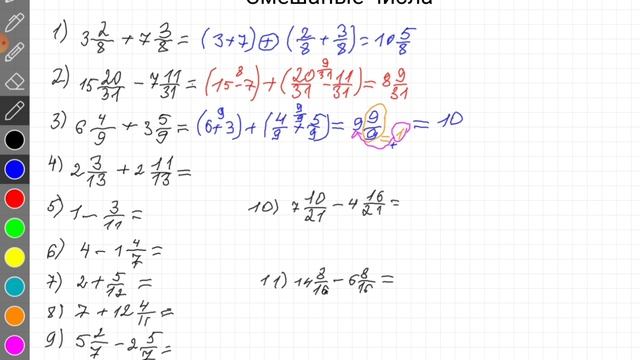 Смешаные числа
1) 3 2/8 + 7 3/8 = (3+7) + (2/8 + 3/8) = 10 5/8
2) 15 20/31 - 7 11/31 = (15 - 7) 8 + (20/31 - 11/31) 9/31 = 8 9/31
3) 6 4/9 + 3 5/9 = (6 + 3) 9 + (4/9 + 5/9) 9/9 = 9 9/9 = 1 + = 10
4) 2 3/13 + 2 11/13 =
5) 1 - 3/11 =
6) 4 - 1 4/7 =
7) 2 + 5/12 =
8) 7 + 12 4/11 =
9) 5 2/7 - 2 5/7 =
10) 7 10/21 - 4 16/21 =
11) 14 8/16 - 6 8/16 =